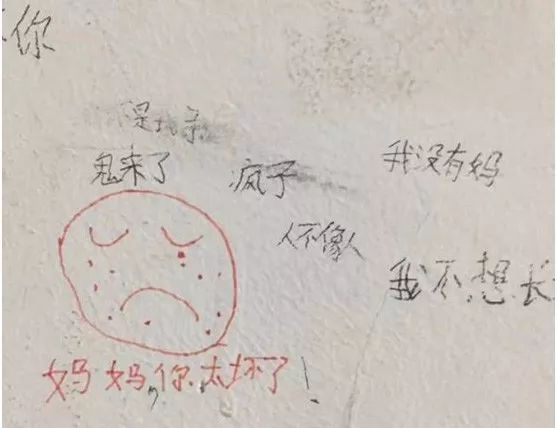 你
鬼来了
疯子
我没有妈
人不像人
我不想长
妈妈,你太坏了!